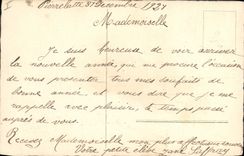 Pierrelatte 31 Décembre 1921
Mademoiselle
Je suis heureuse de voir arriver
la nouvelle année, qui me procure l'occasion
de vous présenter tous mes souhaits de
bonne année et vous dire que je me
rappelle avec plaisir, le temps passé
auprès de vous.
Recevez Mademoiselle mon plus affectueux
Votre petite élève